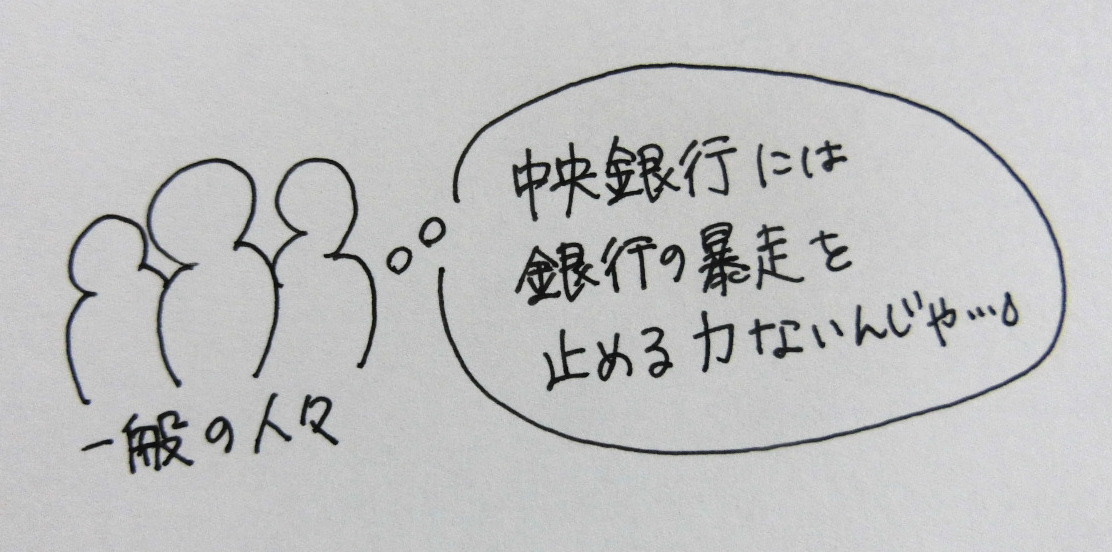 中央銀行には
銀行の暴走を
止める力ないんじゃ…
一般の人々